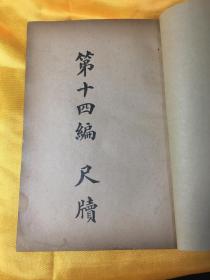 第十四編 尺牘